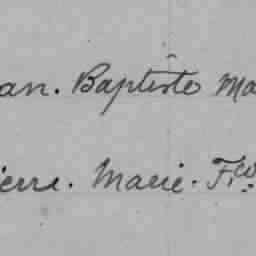 an. Baptiste Ma
ierre. Marie. F.co